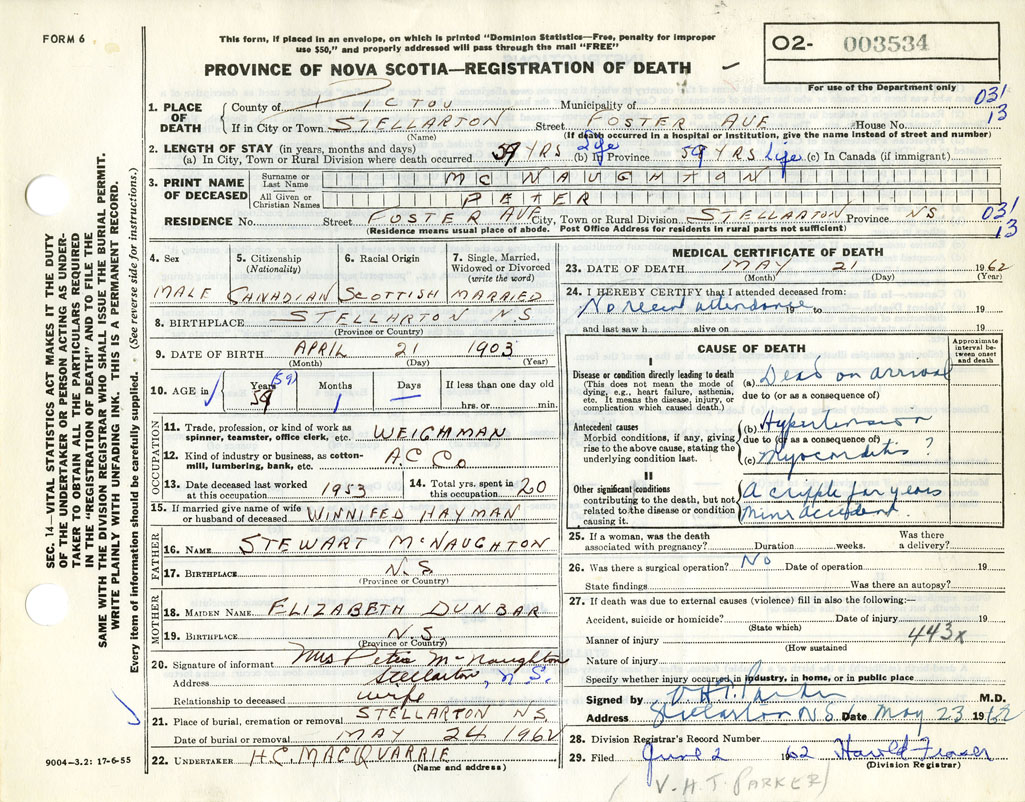 FORM 6
This form, if placed in an envelope, on which is printed "Dominion Statistics—Free, penalty for improper
use $50," and properly addressed will pass through the mail "FREE"
PROVINCE OF NOVA SCOTIA—REGISTRATION OF DEATH
O2- 003534
For use of the Department only
031
13
1. PLACE OF DEATH
County of PICTOU Municipality of
If in City or Town STELLARTON Street FOSTER AVE House No.
(Name) (If death occurred in a hospital or institution, give the name instead of street and number)
2. LENGTH OF STAY (in years, months and days)
(a) In City, Town or Rural Division where death occurred 59 YRS Life (b) In Province 59 YRS Life (c) In Canada (if immigrant)
3. PRINT NAME OF DECEASED
Surname or Last Name MCNAUGHTON
All Given or Christian Names PETER
RESIDENCE No. Street FOSTER AVE City, Town or Rural Division STELLARTON Province NS
(Residence means usual place of abode. Post Office Address for residents in rural parts not sufficient)
031
13
4. Sex
MALE
5. Citizenship (Nationality)
CANADIAN
6. Racial Origin
SCOTTISH
7. Single, Married, Widowed or Divorced (write the word)
MARRIED
8. BIRTHPLACE STELLARTON N.S
(Province or Country)
9. DATE OF BIRTH APRIL 21 1903
(Month) (Day) (Year)
10. AGE in
Years 59 (59)
Months 1
Days —
If less than one day old
hrs. or min.
OCCUPATION
11. Trade, profession, or kind of work as spinner, teamster, office clerk, etc. WEIGHMAN
12. Kind of industry or business, as cotton-mill, lumbering, bank, etc. A.C.Co
13. Date deceased last worked at this occupation 1953
14. Total yrs. spent in this occupation 20
15. If married give name of wife or husband of deceased WINNIFED HAYMAN
FATHER
16. NAME STEWART McNAUGHTON
17. BIRTHPLACE N.S.
(Province or Country)
MOTHER
18. MAIDEN NAME ELIZABETH DUNBAR
19. BIRTHPLACE N.S.
(Province or Country)
20. Signature of informant Mrs Peter McNaughton
Address Stellarton, N.S.
Relationship to deceased wife
21. Place of burial, cremation or removal STELLARTON NS
Date of burial or removal MAY 24 1962
22. UNDERTAKER H.C. MACQUARRIE
(Name and address)
MEDICAL CERTIFICATE OF DEATH
23. DATE OF DEATH MAY 21 1962
(Month) (Day) (Year)
24. I HEREBY CERTIFY that I attended deceased from:
No recent attendance 19 to 19
and last saw h alive on 19
CAUSE OF DEATH
Approximate interval between onset and death
I
Disease or condition directly leading to death
(This does not mean the mode of dying, e.g., heart failure, asthenia, etc. It means the disease, injury, or complication which caused death.)
(a) Dead on arrival
due to (or as a consequence of)
Antecedent causes
Morbid conditions, if any, giving rise to the above cause, stating the underlying condition last.
(b) Hypertension
due to (or as a consequence of)
(c) Myocarditis ?
II
Other significant conditions contributing to the death, but not related to the disease or condition causing it.
A cripple for years
Mine accident.
25. If a woman, was the death associated with pregnancy? Duration weeks. Was there a delivery?
26. Was there a surgical operation? No Date of operation 19
State findings Was there an autopsy?
27. If death was due to external causes (violence) fill in also the following:—
Accident, suicide or homicide? Date of injury 19
(State which)
443x
Manner of injury
(How sustained
Nature of injury
Specify whether injury occurred in industry, in home, or in public place
Signed by V.H.T. Parker M.D.
Address Stellarton N.S. Date May 23 1962
28. Division Registrar's Record Number
29. Filed June 2 1962 Harold Fraser
(Division Registrar)
(V.H.T. PARKER)
SEC. 14—VITAL STATISTICS ACT MAKES IT THE DUTY
OF THE UNDERTAKER OR PERSON ACTING AS UNDER-
TAKER TO OBTAIN ALL THE PARTICULARS REQUIRED
IN THE "REGISTRATION OF DEATH" AND TO FILE THE
SAME WITH THE DIVISION REGISTRAR WHO SHALL ISSUE THE BURIAL PERMIT.
WRITE PLAINLY WITH UNFADING INK. THIS IS A PERMANENT RECORD.
Every item of information should be carefully supplied. (See reverse side for instructions.)
9004—3.2: 17-6-55